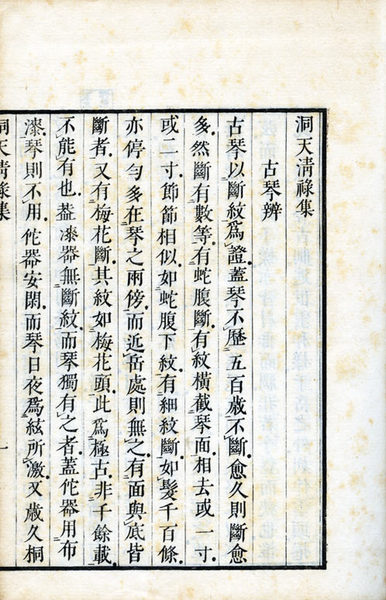 洞天清祿集
古琴辨
古琴以斷紋爲證蓋琴不歷五百歲不斷愈久則斷愈
多然斷有數等有蛇腹斷有紋橫截琴面相去或一寸
或二寸節節相似如蛇腹下紋有細紋斷如髮千百條
亦停勻多在琴之兩傍而近岳處則無之有面與底皆
斷者又有梅花斷其紋如梅花頭此爲極古非千餘載
不能有也蓋漆器無斷紋而琴獨有之者蓋佗器用布
漆琴則不用佗器安閑而琴日夜爲絃所激又歲久桐
洞天清祿集 一